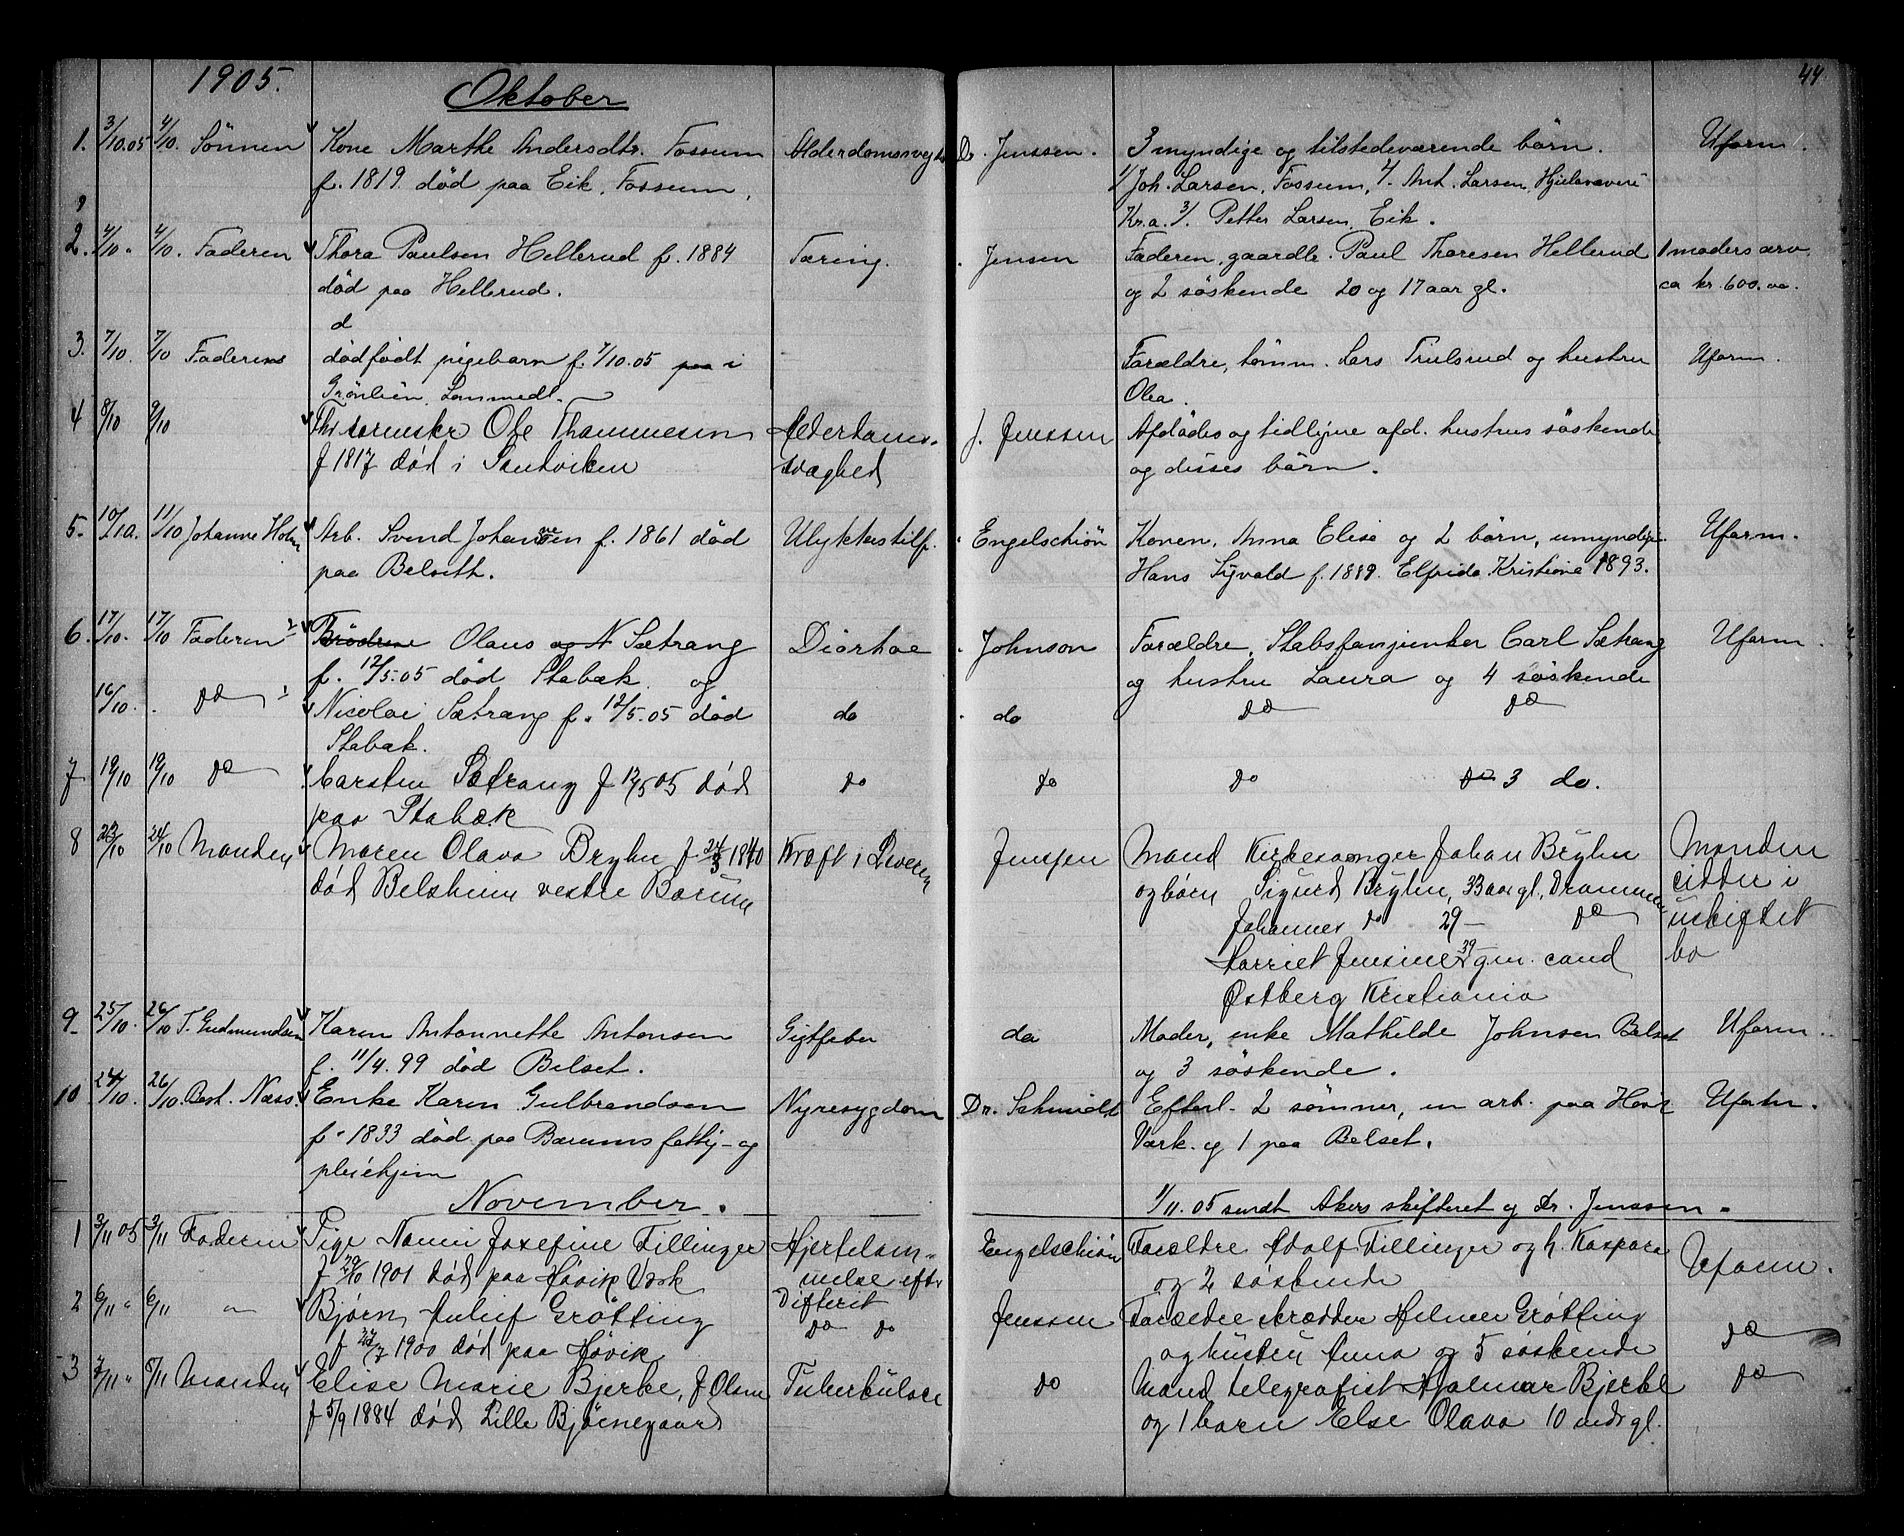 1905.
Oktober
44
1. 3/10.05 4/10. Sönnen Kone Marthe Andersdtr. Fossum Alderdomssvagh. Dr. Jenssen. 3 myndige og tilstedeværende börn. Uform.
f. 1819 död paa Eik, Fossum. 1/ Joh. Larsen, Fossum, 2/. Ant. Larsen,
Kr.a. 3/. Petter Larsen, Eik.
2. 4/10. 4/10. Faderen Thora Paulsen Hellerud f. 1884 Tæring. Jensen Faderen, gaardbr. Paul Thoresen Hellerud 1 møders arv
död paa Hellerud. og 2 söskende 20 og 17 aar gl. ca kr. 600.00.
3. 7/10. 7/10 Faderen dödfödt pigebarn f. 7/10.05 paa i Forældre, tömm. Lars Trulsrud og hustru Uform.
Grönlien, Lommedl. Olea.
4 8/10 9/10 Ole Thommesen Alderdoms- J. Jenssen Afdödes og tidligere afd. hustrus söskende
f 1817 död i Sandviken svaghed og disses börn.
5. 10/10. 11/10 Johanne Holm Arb. Svend Johansen f. 1861 död Ulykkestilf. Engelschiön Konen, Anna Elise og 2 börn, umyndige Uform.
paa Belseth. Hans Syvald f. 1889. Elfrida Kristiane 1893.
6. 17/10. 17/10 Faderen 2 Brödrene Olaus og N Sætrang Diarhoe Johnson Forældre, Stabsfanjunker Carl Sætrang Uform.
f. 12/5.05 död Stabæk og og hustru Laura og 4 söskende
16/10. do 1 Nicolai Sætrang f. 12/5.05 död do do do do
Stabæk.
7 19/10 19/10 do Carsten Sætrang f 12/5 05 död do do do do 3 do.
paa Stabæk
8 23/10 24/10 Manden Maren Olava Bryhn f 24/3 1840 Kræft i Leveren Jenssen Mand Kirkesanger Johan Bryhn Manden
död Belsheim vestre Bærum og börn Sigurd Bryhn, 33 aar gl, Drammen sidder i
Johannes do 29 – do uskiftet
Harriet Jensine 39 gm. cand bo
Østberg Kristiania
9. 25/10. 26/10 T. Gudmundsen Karen Antonnette Antonsen Gigtfeber do Moder, enke Mathilde Johnsen Belset Uform.
f. 11/4.99 död Belset. og 3 söskende.
10. 24/10. 26/10 Best. Næss. Enke Karen Gulbrandsen Nyresygdom Dr. Schmidt Efterl. 2 sönner, en arb. paa Hovik Uform.
f. 1833 död paa Bærums fattig- og Værk. og 1 paa Belset.
pleiehjem
November.
1/11.05 sendt Akers skifteret og Dr. Jenssen.
1 3/11 05 3/11 Faderen Pige Nanni Josefine Fillinger Hjertelam- Engelschiön Forældre Adolf Fillinger og h. Kaspara Uform.
f 29/10 1901 död paa Hövik Værk melse efter og 2 söskende
Difterit
2 6/11 " 6/11 " Bjørn Grötting do do Jenssen Forældre skrædder Hilmer Grötting do
f 1900 död paa Hövik og hustru Anna og 5 söskende
3 7/11 " 5/11 Manden Elise Marie Bjerke, f Olsen Tuberkulose do Mand telegrafist Hjalmar Bjerke do
f 5/9 1884 död Lille Björnegaard og 1 barn Else Olava 10 mdr gl.